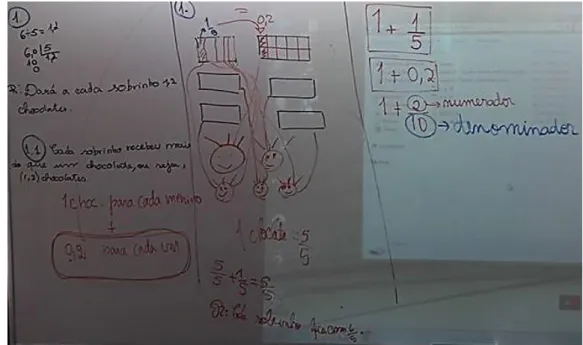 1
6÷5 = 1,2
6,0 |5
10 1,2
0
R: Dará a cada sobrinho 1,2
chocolates.
1.1) Cada sobrinho recebeu mais
do que um chocolate, ou seja,
(1,2) chocolates
1 choc. para cada menino
+
0,2 para cada um
1.
1 = 0,2
1 chocolate = 5/5
5/5 + 1/5 = 6/5
R: Cada sobrinho fica com 6/5.
1 + 1/5
1 + 0,2
1 + 2 → numerador
10 → denominador